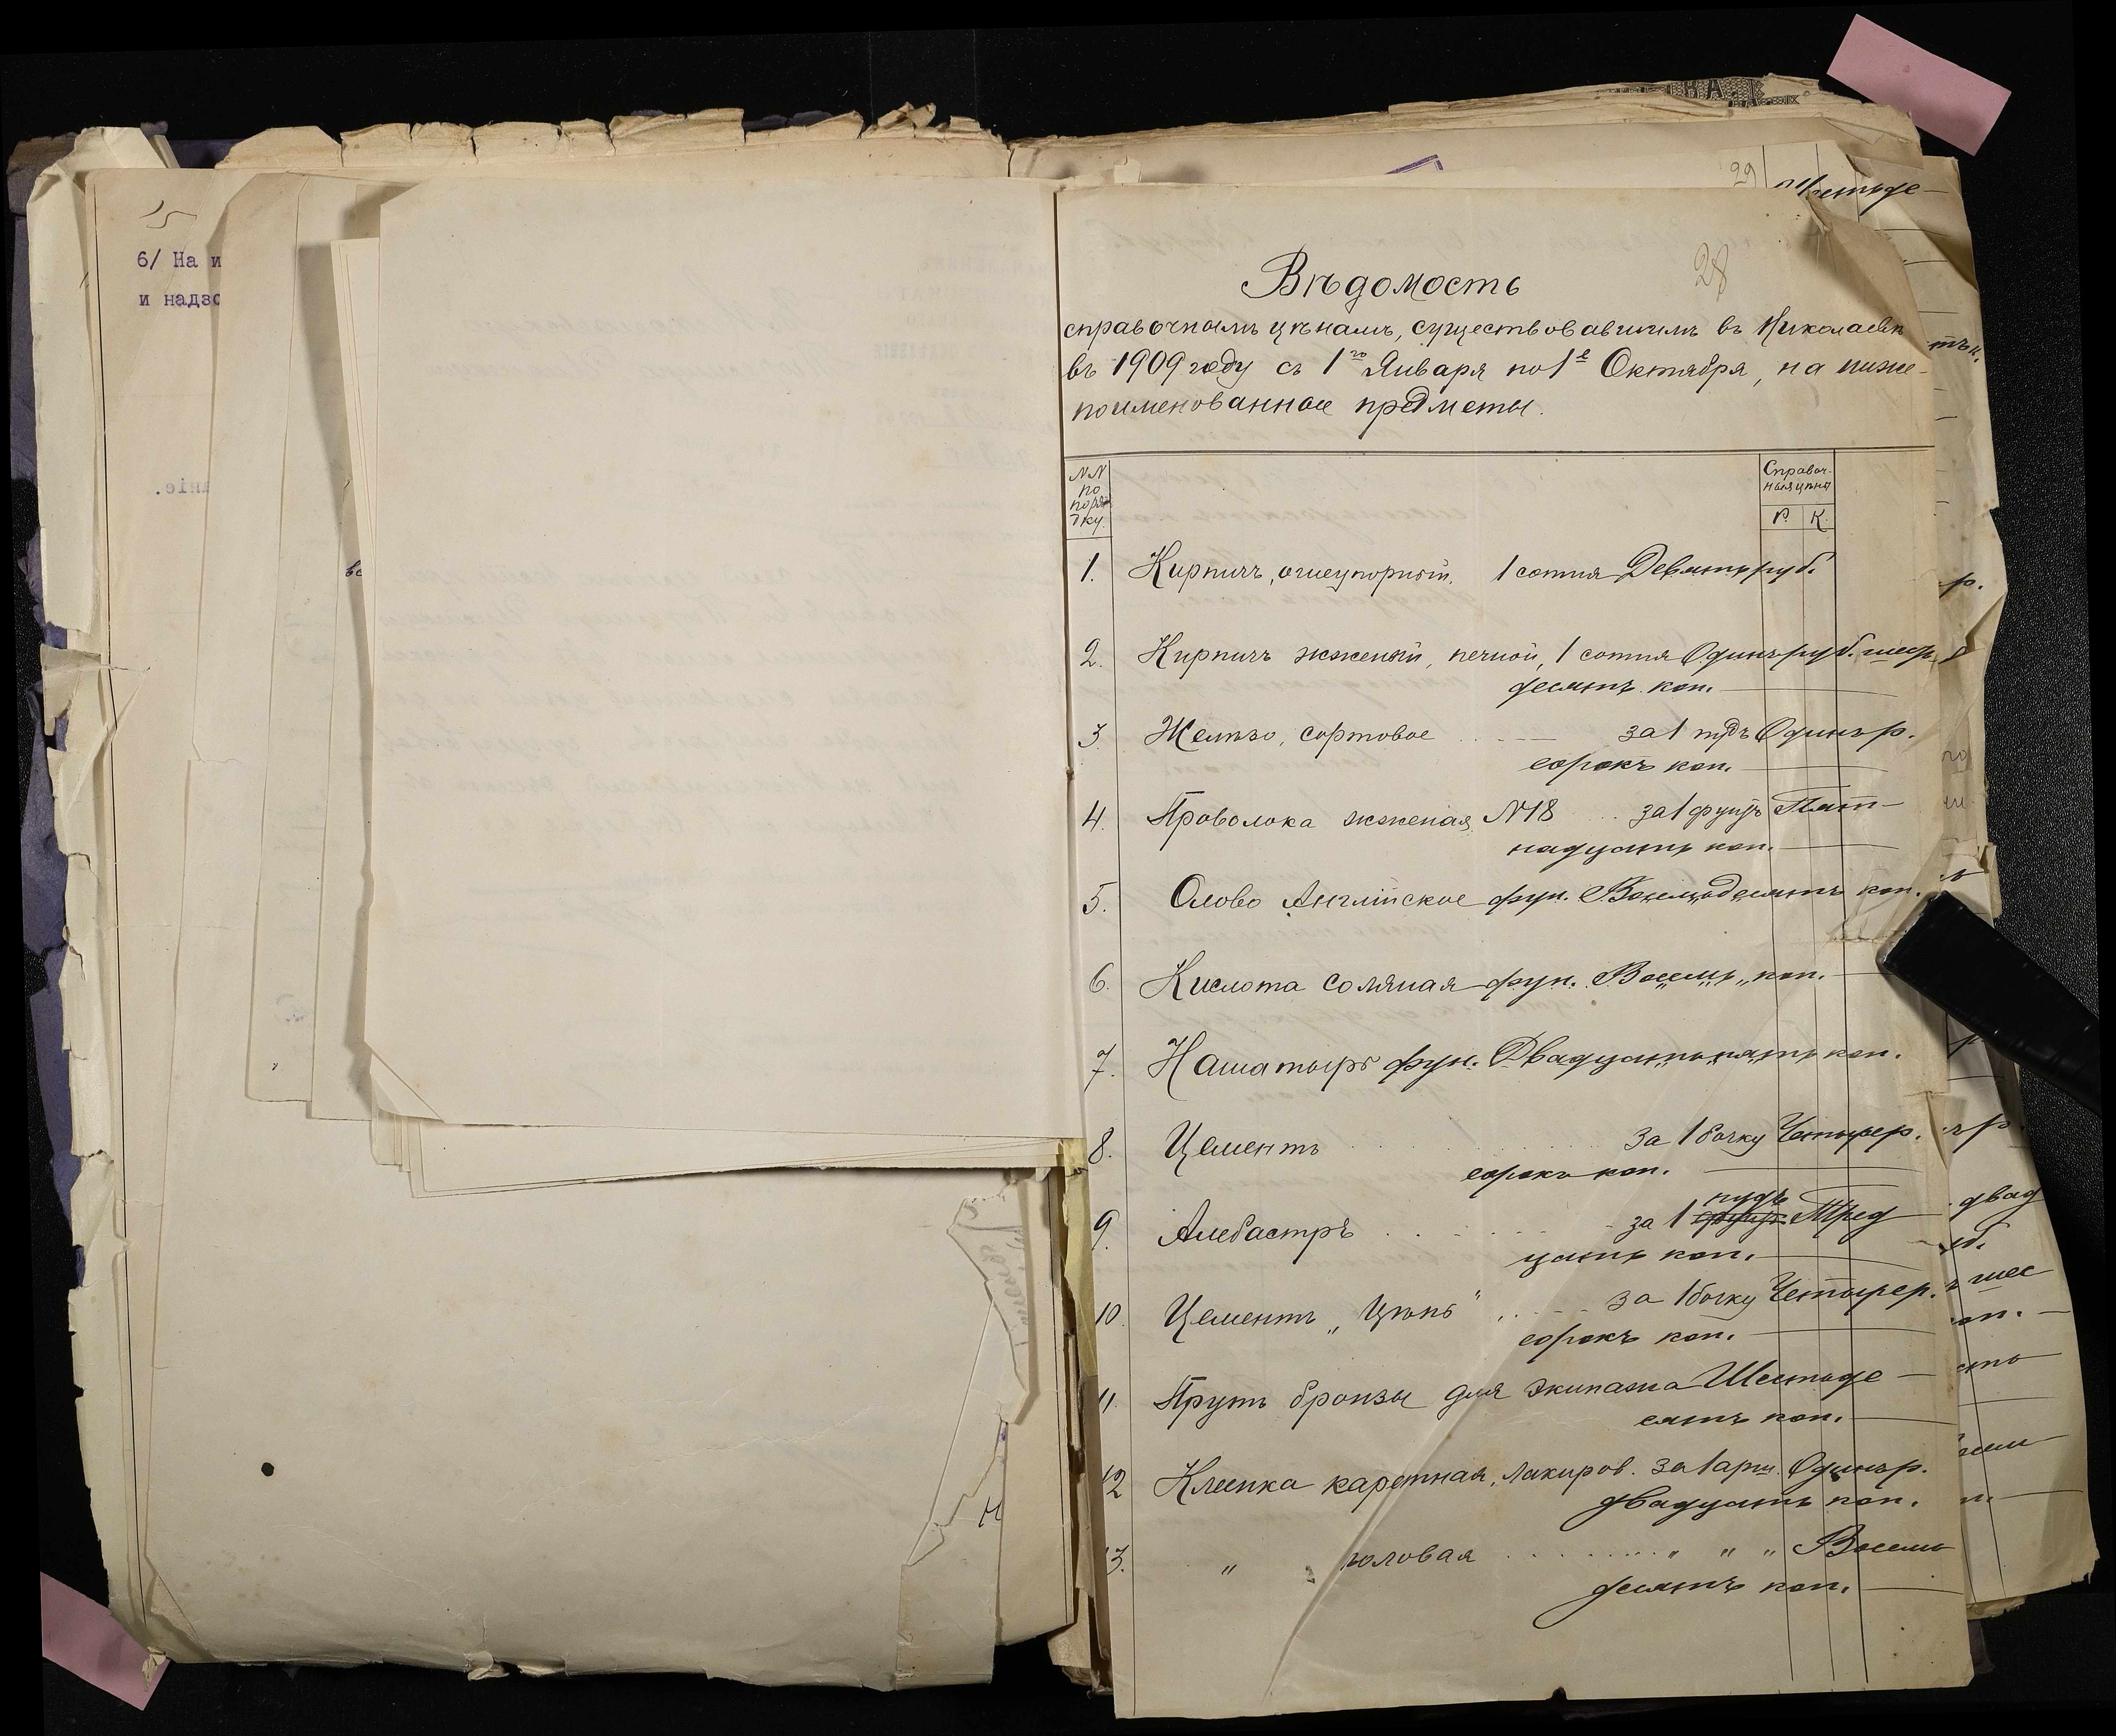 15
6/ На и
и надзо
29
Шестьде-
28
Вѣдомость
справочнымъ цѣнамъ, существовавшимъ въ Николаевѣ
въ 1909 году съ 1го Января по 1е Октября, на ниже-
поименованные предметы.
NN по порядку.
Справочная цѣна
Р. К.
1. Кирпичъ, огнеупорный. 1 сотня Девять руб.
2. Кирпичъ жженый, печной, 1 сотня Одинъ руб. шесть
десятъ коп.
3 Желѣзо, сортовое за 1 пудъ Одинъ р.
сорокъ коп.
4. Проволока жженая N18 за 1 фунтъ Пят-
надцать коп.
5. Олово Англійское фун. Восемьдесятъ коп.
6. Кислота соляная фун. Восемь коп.
7. Нашатырь фун. Двадцать пять коп.
8. Цементъ за 1 бочку Четыре р.
сорокъ коп.
9. Алебастръ за 1 пудъ Тред
цать коп.
10. Цементъ „Цѣпь" за 1 бочку Четыре р.
сорокъ коп.
11. Прутъ бронзы для экипажа Шестьде-
сятъ коп.
12 Клеенка каретная, лакиров. за 1 арш. Одинъ р.
двадцать коп.
13. " половая " " " Восемь
десятъ коп.
р.
двад
уб.
шес
коп.